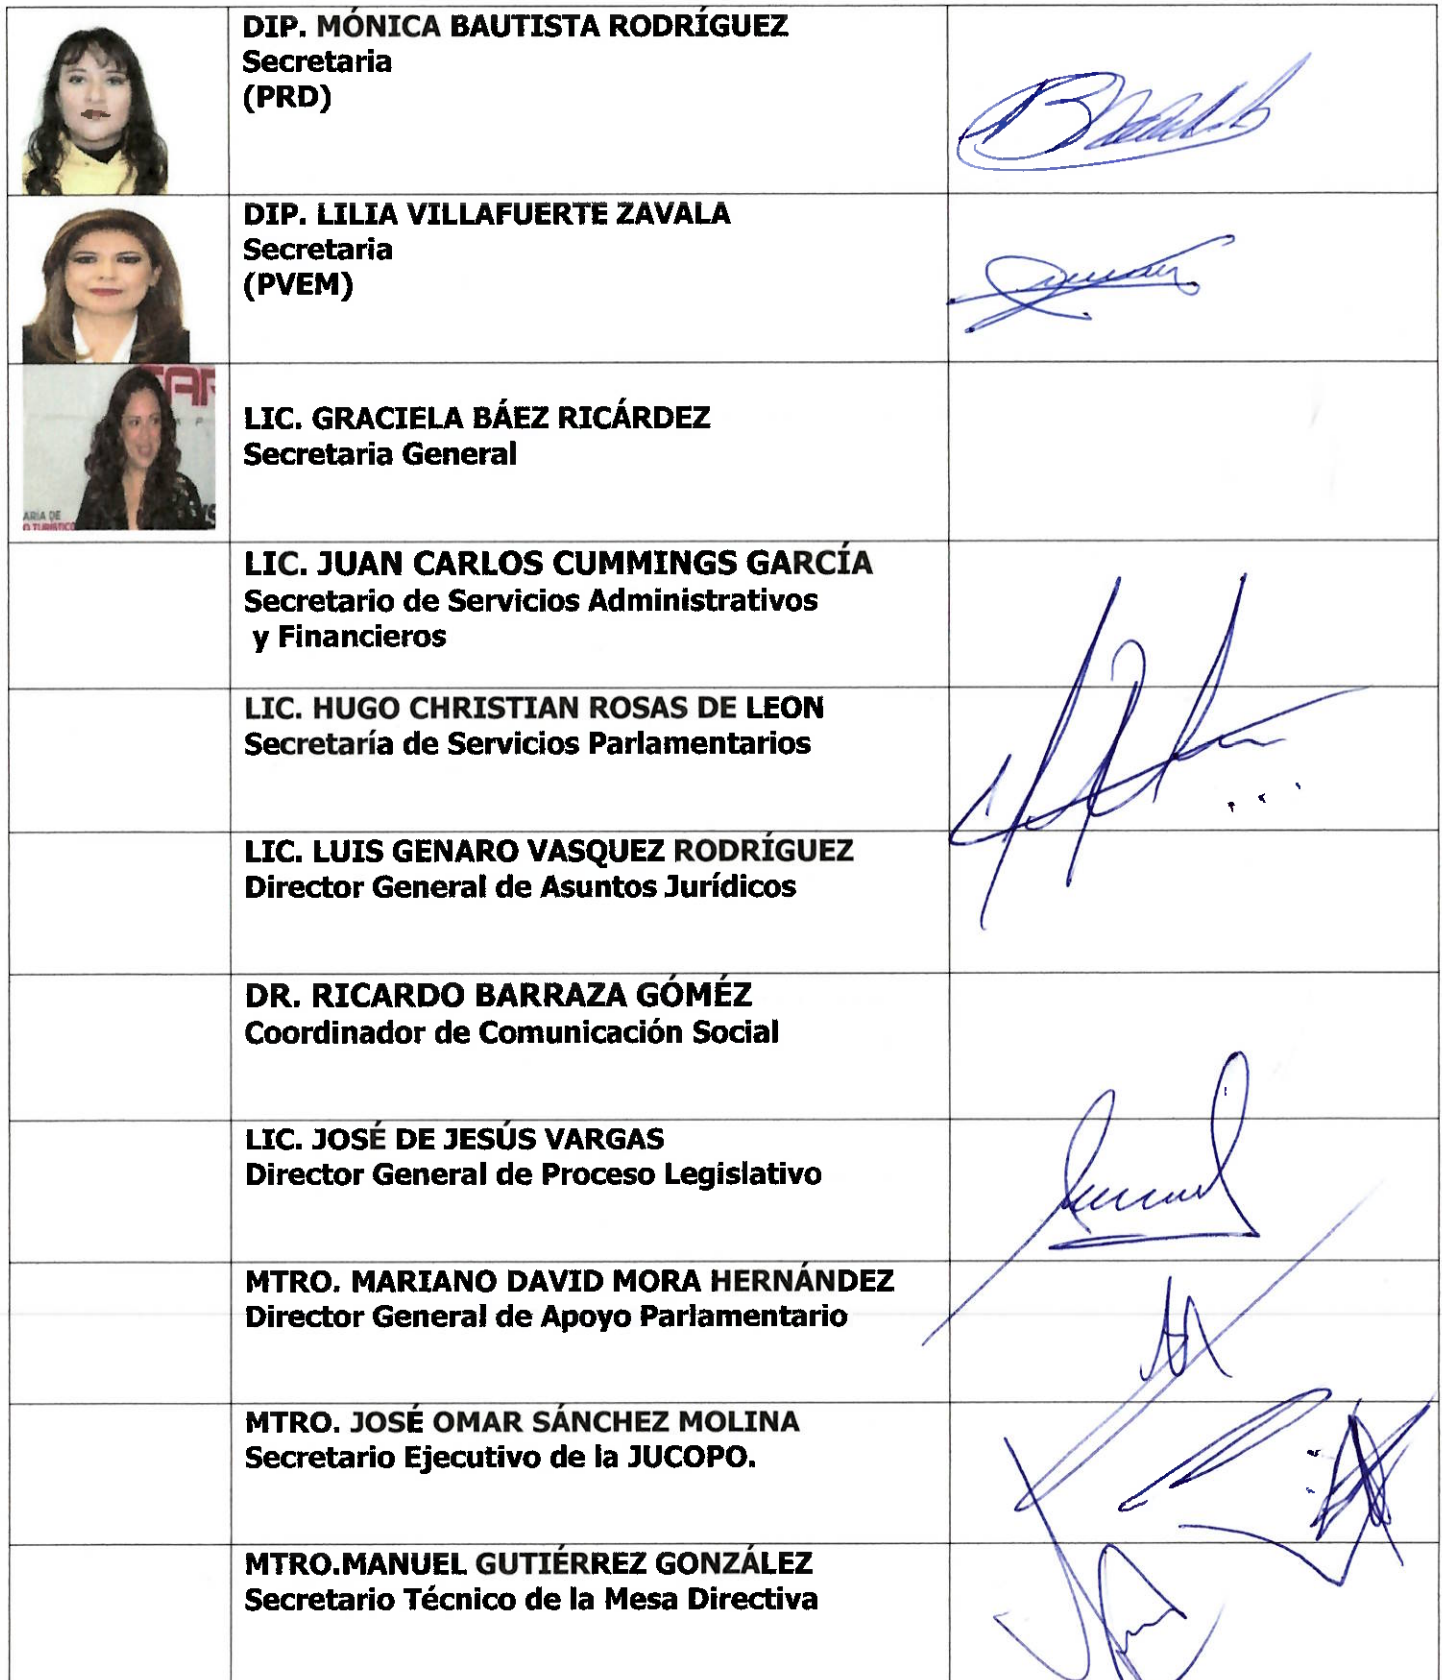 DIP. MÓNICA BAUTISTA RODRÍGUEZ
Secretaria
(PRD)
DIP. LILIA VILLAFUERTE ZAVALA
Secretaria
(PVEM)
ARÍA DE
O TURÍSTICO
LIC. GRACIELA BÁEZ RICÁRDEZ
Secretaria General
LIC. JUAN CARLOS CUMMINGS GARCÍA
Secretario de Servicios Administrativos
y Financieros
LIC. HUGO CHRISTIAN ROSAS DE LEON
Secretaría de Servicios Parlamentarios
LIC. LUIS GENARO VASQUEZ RODRÍGUEZ
Director General de Asuntos Jurídicos
DR. RICARDO BARRAZA GÓMÉZ
Coordinador de Comunicación Social
LIC. JOSÉ DE JESÚS VARGAS
Director General de Proceso Legislativo
MTRO. MARIANO DAVID MORA HERNÁNDEZ
Director General de Apoyo Parlamentario
MTRO. JOSÉ OMAR SÁNCHEZ MOLINA
Secretario Ejecutivo de la JUCOPO.
MTRO.MANUEL GUTIÉRREZ GONZÁLEZ
Secretario Técnico de la Mesa Directiva